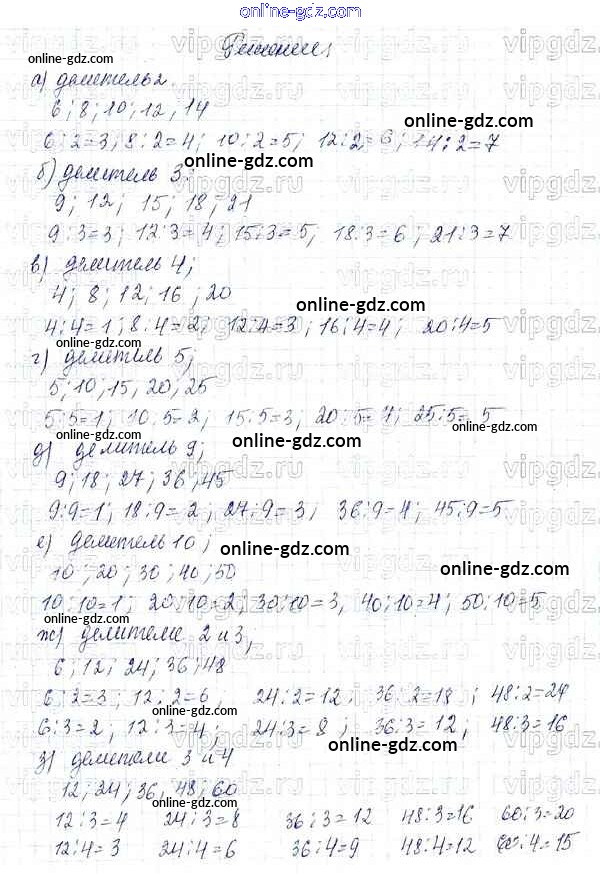 online-gdz.com
Решение
а) делитель 2.
6; 8; 10; 12; 14
6:2=3; 8:2=4; 10:2=5; 12:2=6; 14:2=7
б) делитель 3:
9; 12; 15; 18; 21
9:3=3; 12:3=4; 15:3=5; 18:3=6; 21:3=7
в) делитель 4;
4; 8; 12; 16; 20
4:4=1; 8:4=2; 12:4=3; 16:4=4; 20:4=5
г) делитель 5;
5; 10; 15, 20; 25
5:5=1; 10:5=2; 15:5=3; 20:5=4; 25:5=5
д) делитель 9;
9; 18; 27; 36; 45
9:9=1; 18:9=2; 27:9=3; 36:9=4; 45:9=5
е) делитель 10;
10; 20; 30; 40; 50
10:10=1; 20:10=2; 30:10=3, 40:10=4; 50:10=5
ж) делители 2 и 3,
6; 12; 24; 36; 48
6:2=3; 12:2=6; 24:2=12; 36:2=18; 48:2=24
6:3=2; 12:3=4; 24:3=8; 36:3=12; 48:3=16
з) делители 3 и 4
12; 24; 36, 48; 60
12:3=4 24:3=8 36:3=12 48:3=16 60:3=20
12:4=3 24:4=6 36:4=9 48:4=12 60:4=15